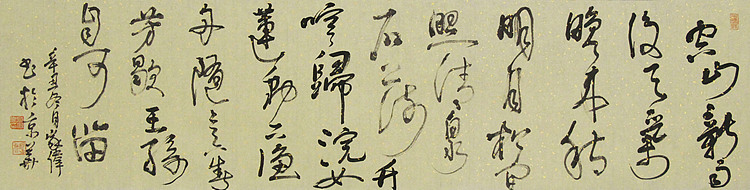 空山新雨
後天氣
晚来秋
明月松間
照清泉
石上流竹
喧歸浣女
蓮動下漁
舟随意春
芳歇王孫
自可留
辛丑冬月
书於京華